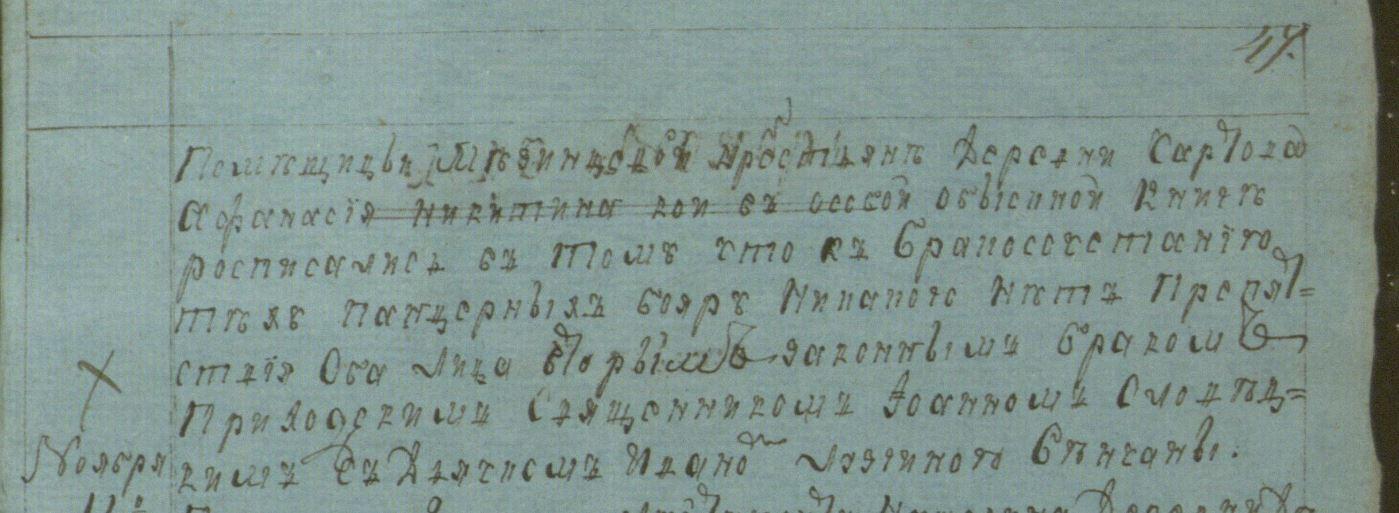 49.
Помѣщицы Мѣзинцовой крестьянъ Деревни
Афанасія Никитина кои въ особой обыскной Книгѣ
росписались въ томъ что къ Бракосочетанію
тѣхъ панцерныхъ бояръ Никакого Нѣтъ Препят=
ствія Оба Лица вторымъ законнымъ бракомъ
Приходскимъ Священникомъ Іоанномъ
кимъ Съ Дьячкомъ Ивано Вѣнчаны.
Ноября